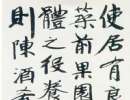 使居有良
菜前果園
體之役養
則陳酒肴